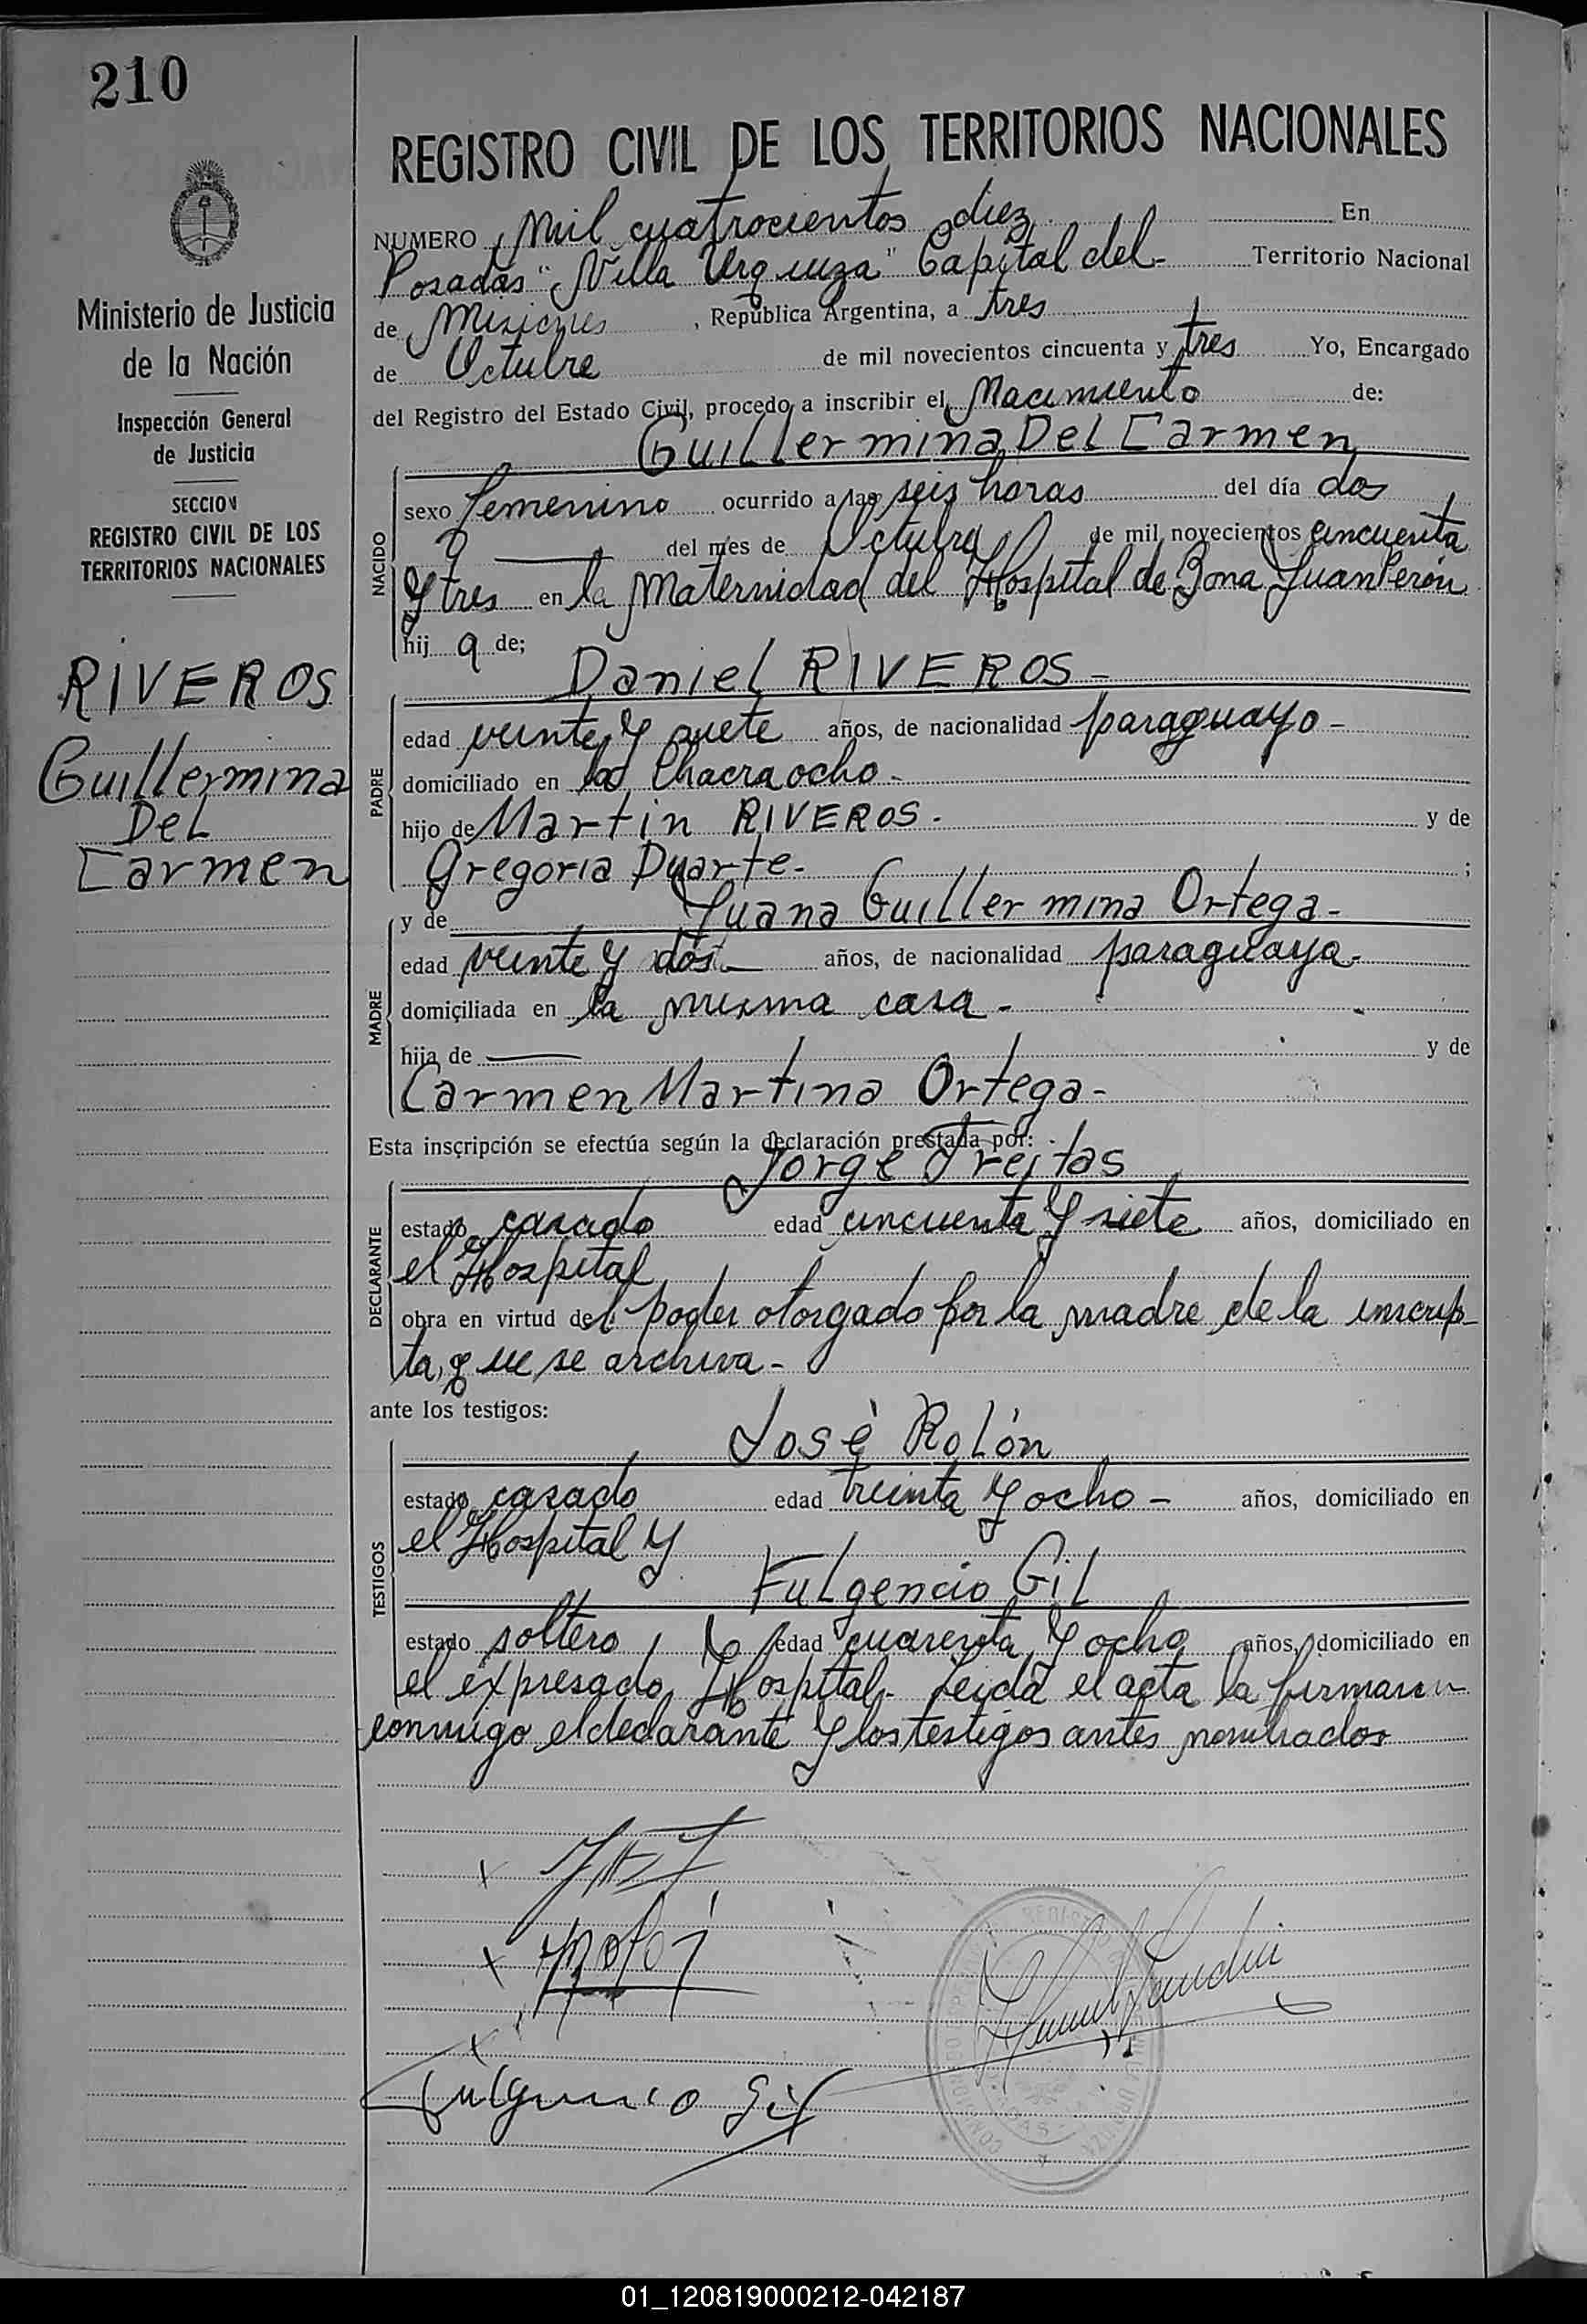 210
Ministerio de Justicia
de la Nación
Inspección General
de Justicia
SECCION
REGISTRO CIVIL DE LOS
TERRITORIOS NACIONALES
RIVEROS
Guillermina
Del
Carmen
REGISTRO CIVIL DE LOS TERRITORIOS NACIONALES
NUMERO Mil cuatrocientos diez En
Posadas "Villa Urquiza" Capital del Territorio Nacional
de Misiones, República Argentina, a tres
de Octubre de mil novecientos cincuenta y tres Yo, Encargado
del Registro del Estado Civil, procedo a inscribir el Nacimiento de:
Guillermina Del Carmen
NACIDO
sexo femenino ocurrido a las seis horas del día dos
del mes de Octubre de mil novecientos cincuenta
y tres en la Maternidad del Hospital de Zona Juan Perón
hij a de;
Daniel RIVEROS -
PADRE
edad veinte y siete años, de nacionalidad paraguayo -
domiciliado en la Chacra ocho -
hijo de Martin RIVEROS. y de
Gregoria Duarte. ;
y de Juana Guillermina Ortega -
MADRE
edad veinte y dos - años, de nacionalidad paraguaya -
domiciliada en la misma casa -
hija de — y de
Carmen Martina Ortega -
Esta inscripción se efectúa según la declaración prestada por:
Jorge Freitas
DECLARANTE
estado casado edad cincuenta y siete años, domiciliado en
el Hospital
obra en virtud del poder otorgado por la madre de la inscrip-
ta, que se archiva -
ante los testigos:
José Rolón
TESTIGOS
estado casado edad treinta y ocho - años, domiciliado en
el Hospital y
Fulgencio Gil
estado soltero, edad cuarenta y ocho años, domiciliado en
el expresado Hospital - Leida el acta la firmaron
conmigo el declarante y los testigos antes nombrados
Fulgencio Gil
01_120819000212-042187